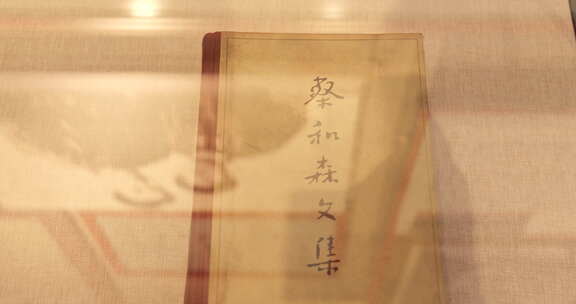 蔡和森文集